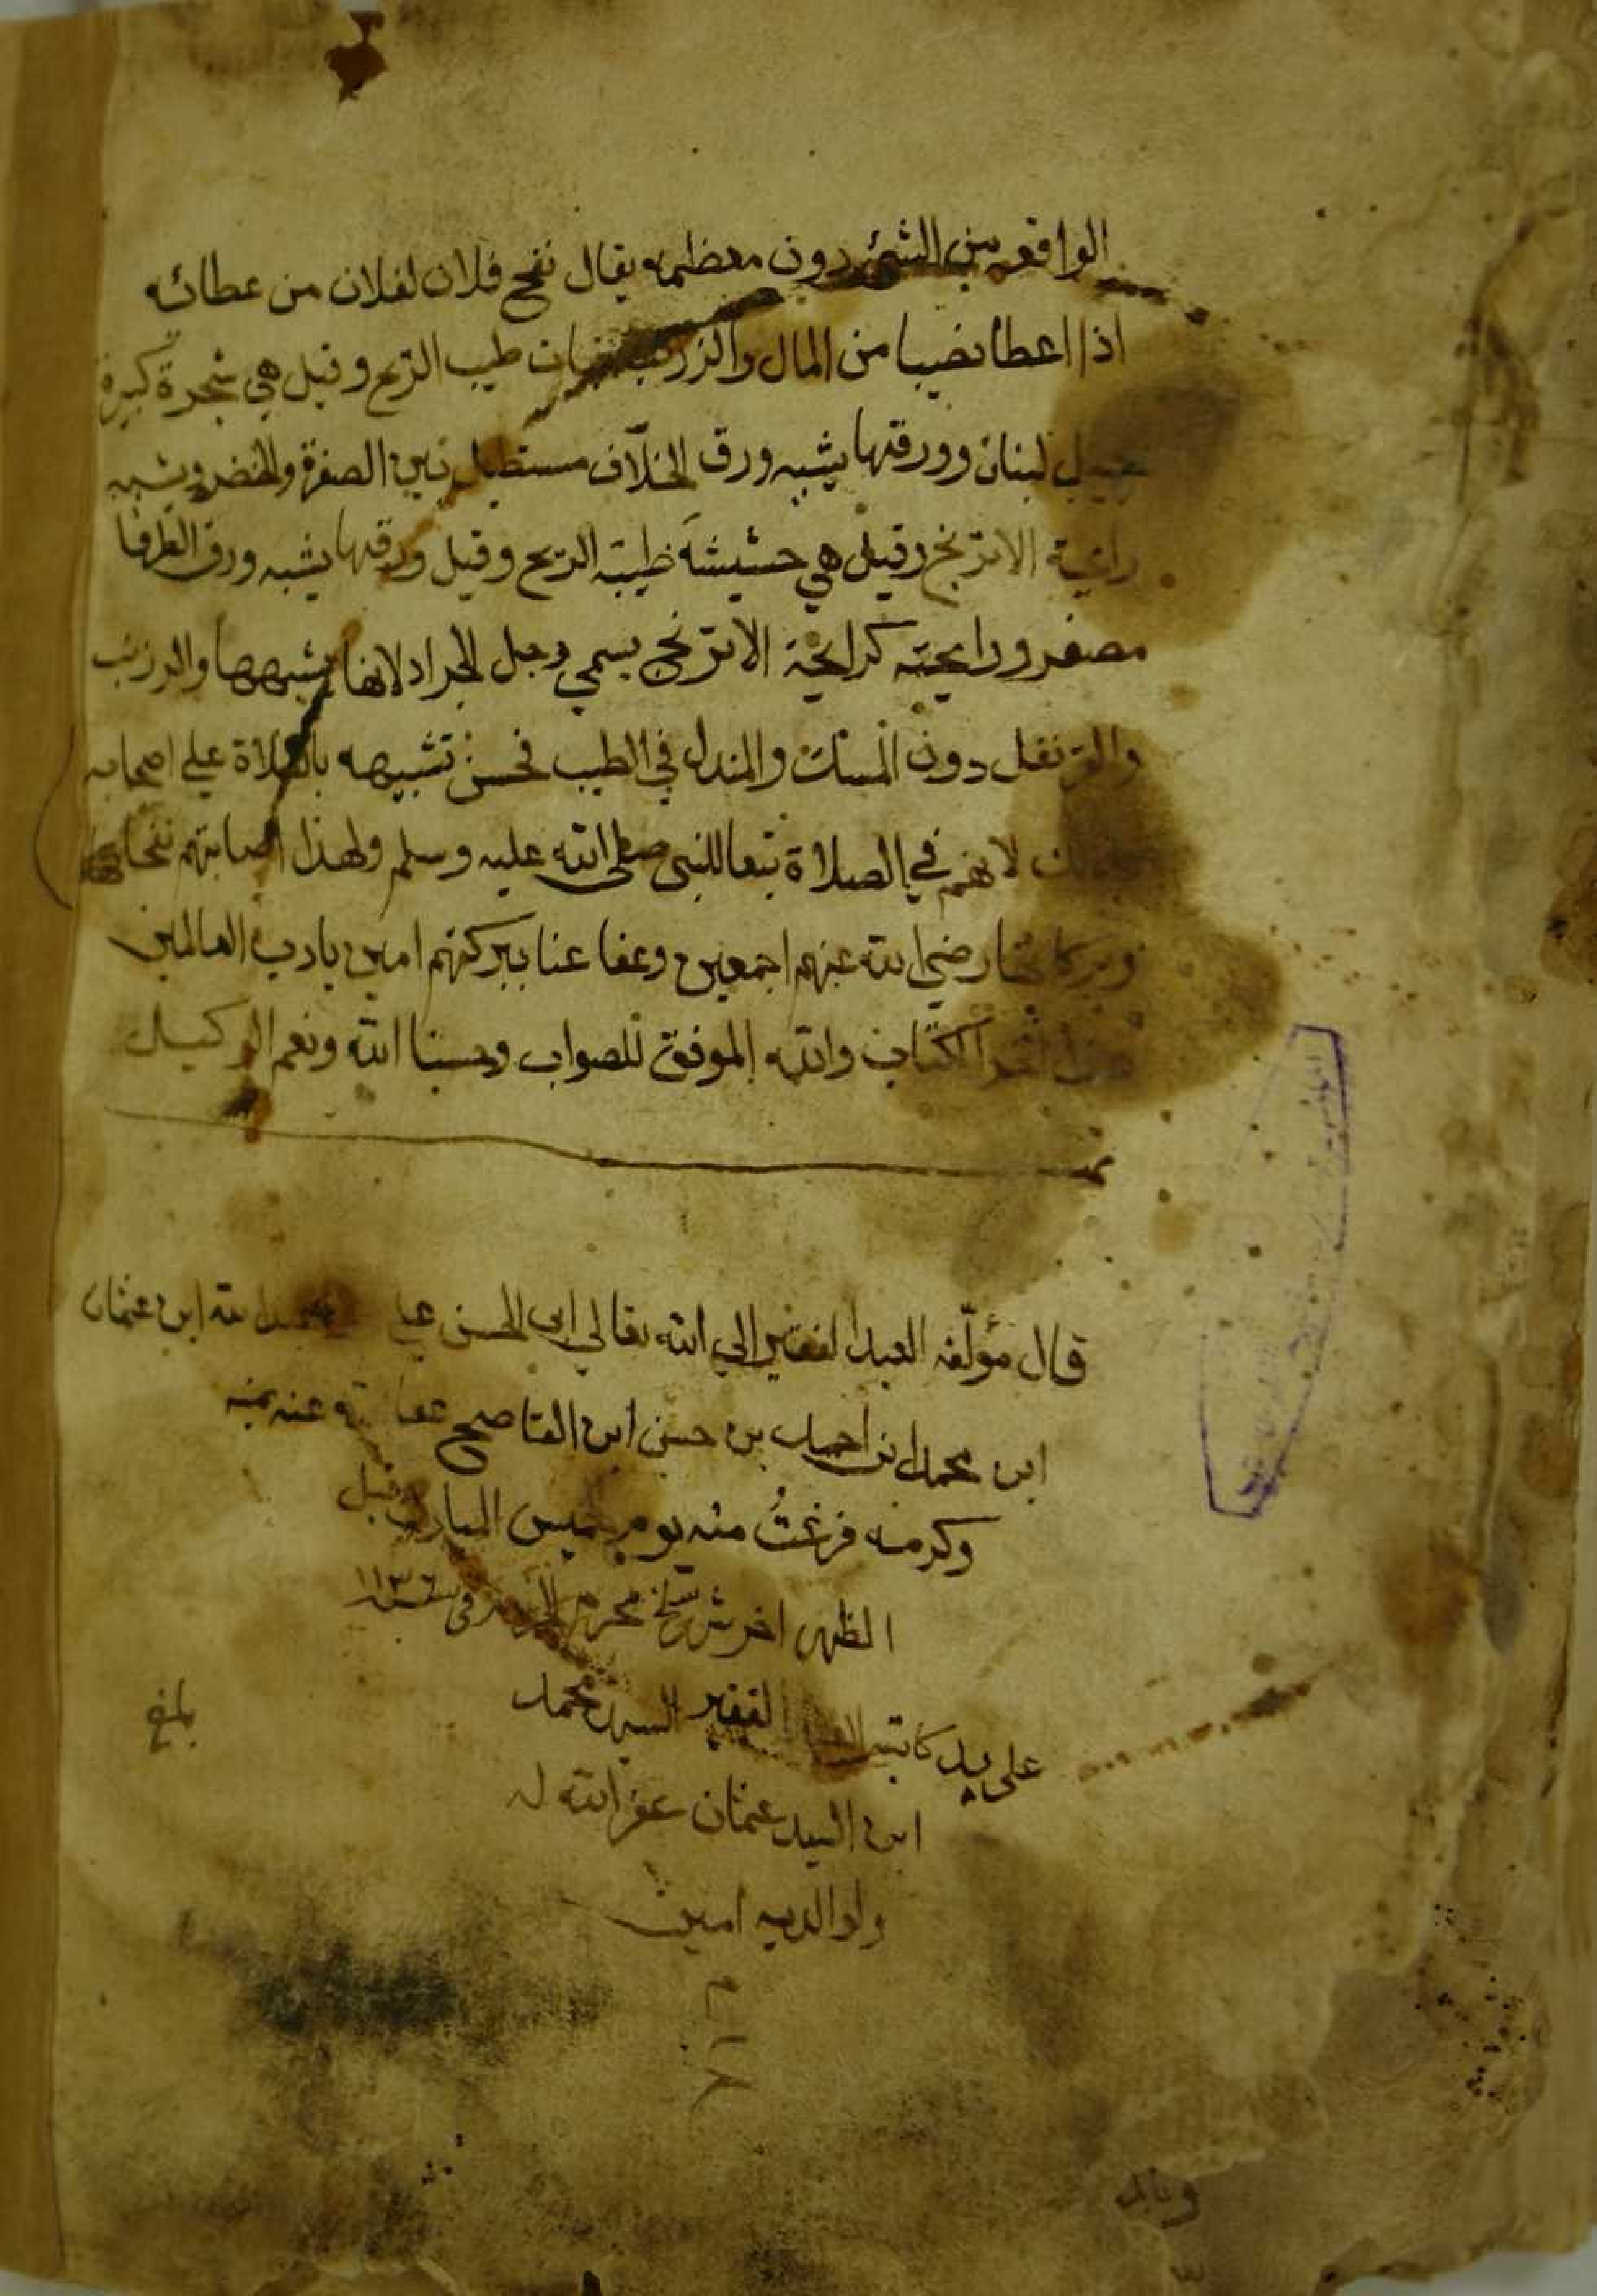 الواقعه من الشئ دون معظمه يقال نفح فلان لفلان من عطائه
اذا اعطا نصيبا من المال والزرنب نبات طيب الريح وقيل هي شجرة كبيرة
لبنان وورقتها يشبه ورق الخلّاف مستطيل بين الصفرة والخضرة ويشبه
رائحة الاترنج وقيل هي حشيشة طيبة الريح وقيل ورقتها يشبه ورق الطرفا
مصفر ورايحته كرايحة الاترنج يسمي رجل الجراد لانها يشبهها والزرنب
والقرنفل دون المسك والمندل في الطيب فحسن تشبيهه بالصلاة علي اصحابه
لانهم في الصلاة تبعا للنبي صلى الله عليه وسلم ولهذا اصابتهم نفحاتها
وبركاتها رضي الله عنهم اجمعين وعفا عنا ببركتهم امين يا رب العالمين
الكتاب والله الموفق للصواب وحسبنا الله ونعم الوكيل
قال مؤلّفه العبد الفقير الي الله تعالي ابي الحسن علي ابن عثمان
ابن محمد ابن احمد بن حسن ابن القاصح عفا الله عنه بمنه
وكرمه فرغتُ منه يوم خميس المبارك قبل
الظهر اخر شهر محرم الحرام في سنة
على يد كاتبه الفقير السيد محمد
ابن السيد عثمان غفر الله له
ولوالديه امين
م
بلغ